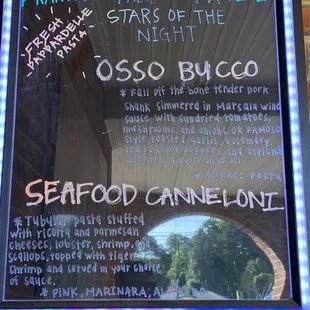 STARS OF THE
NIGHT
FRESH
PAPPARDELLE
PASTA
OSSO BUCCO
* Fall off the bone tender pork
Shank simmered in Marsala wine
sauce with sundried tomatoes,
mushrooms, and onions, OR FAMOSO
style, roasted garlic, rosemary,
red roasted peppers, and
olive oil
* includes Pasta
SEAFOOD CANNELONI
* Tubular pasta stuffed
with ricotta and parmesan
cheeses, lobster, shrimp, and
scallops, topped with tiger
shrimp and served in your choice
of sauce.
* PINK, MARINARA,